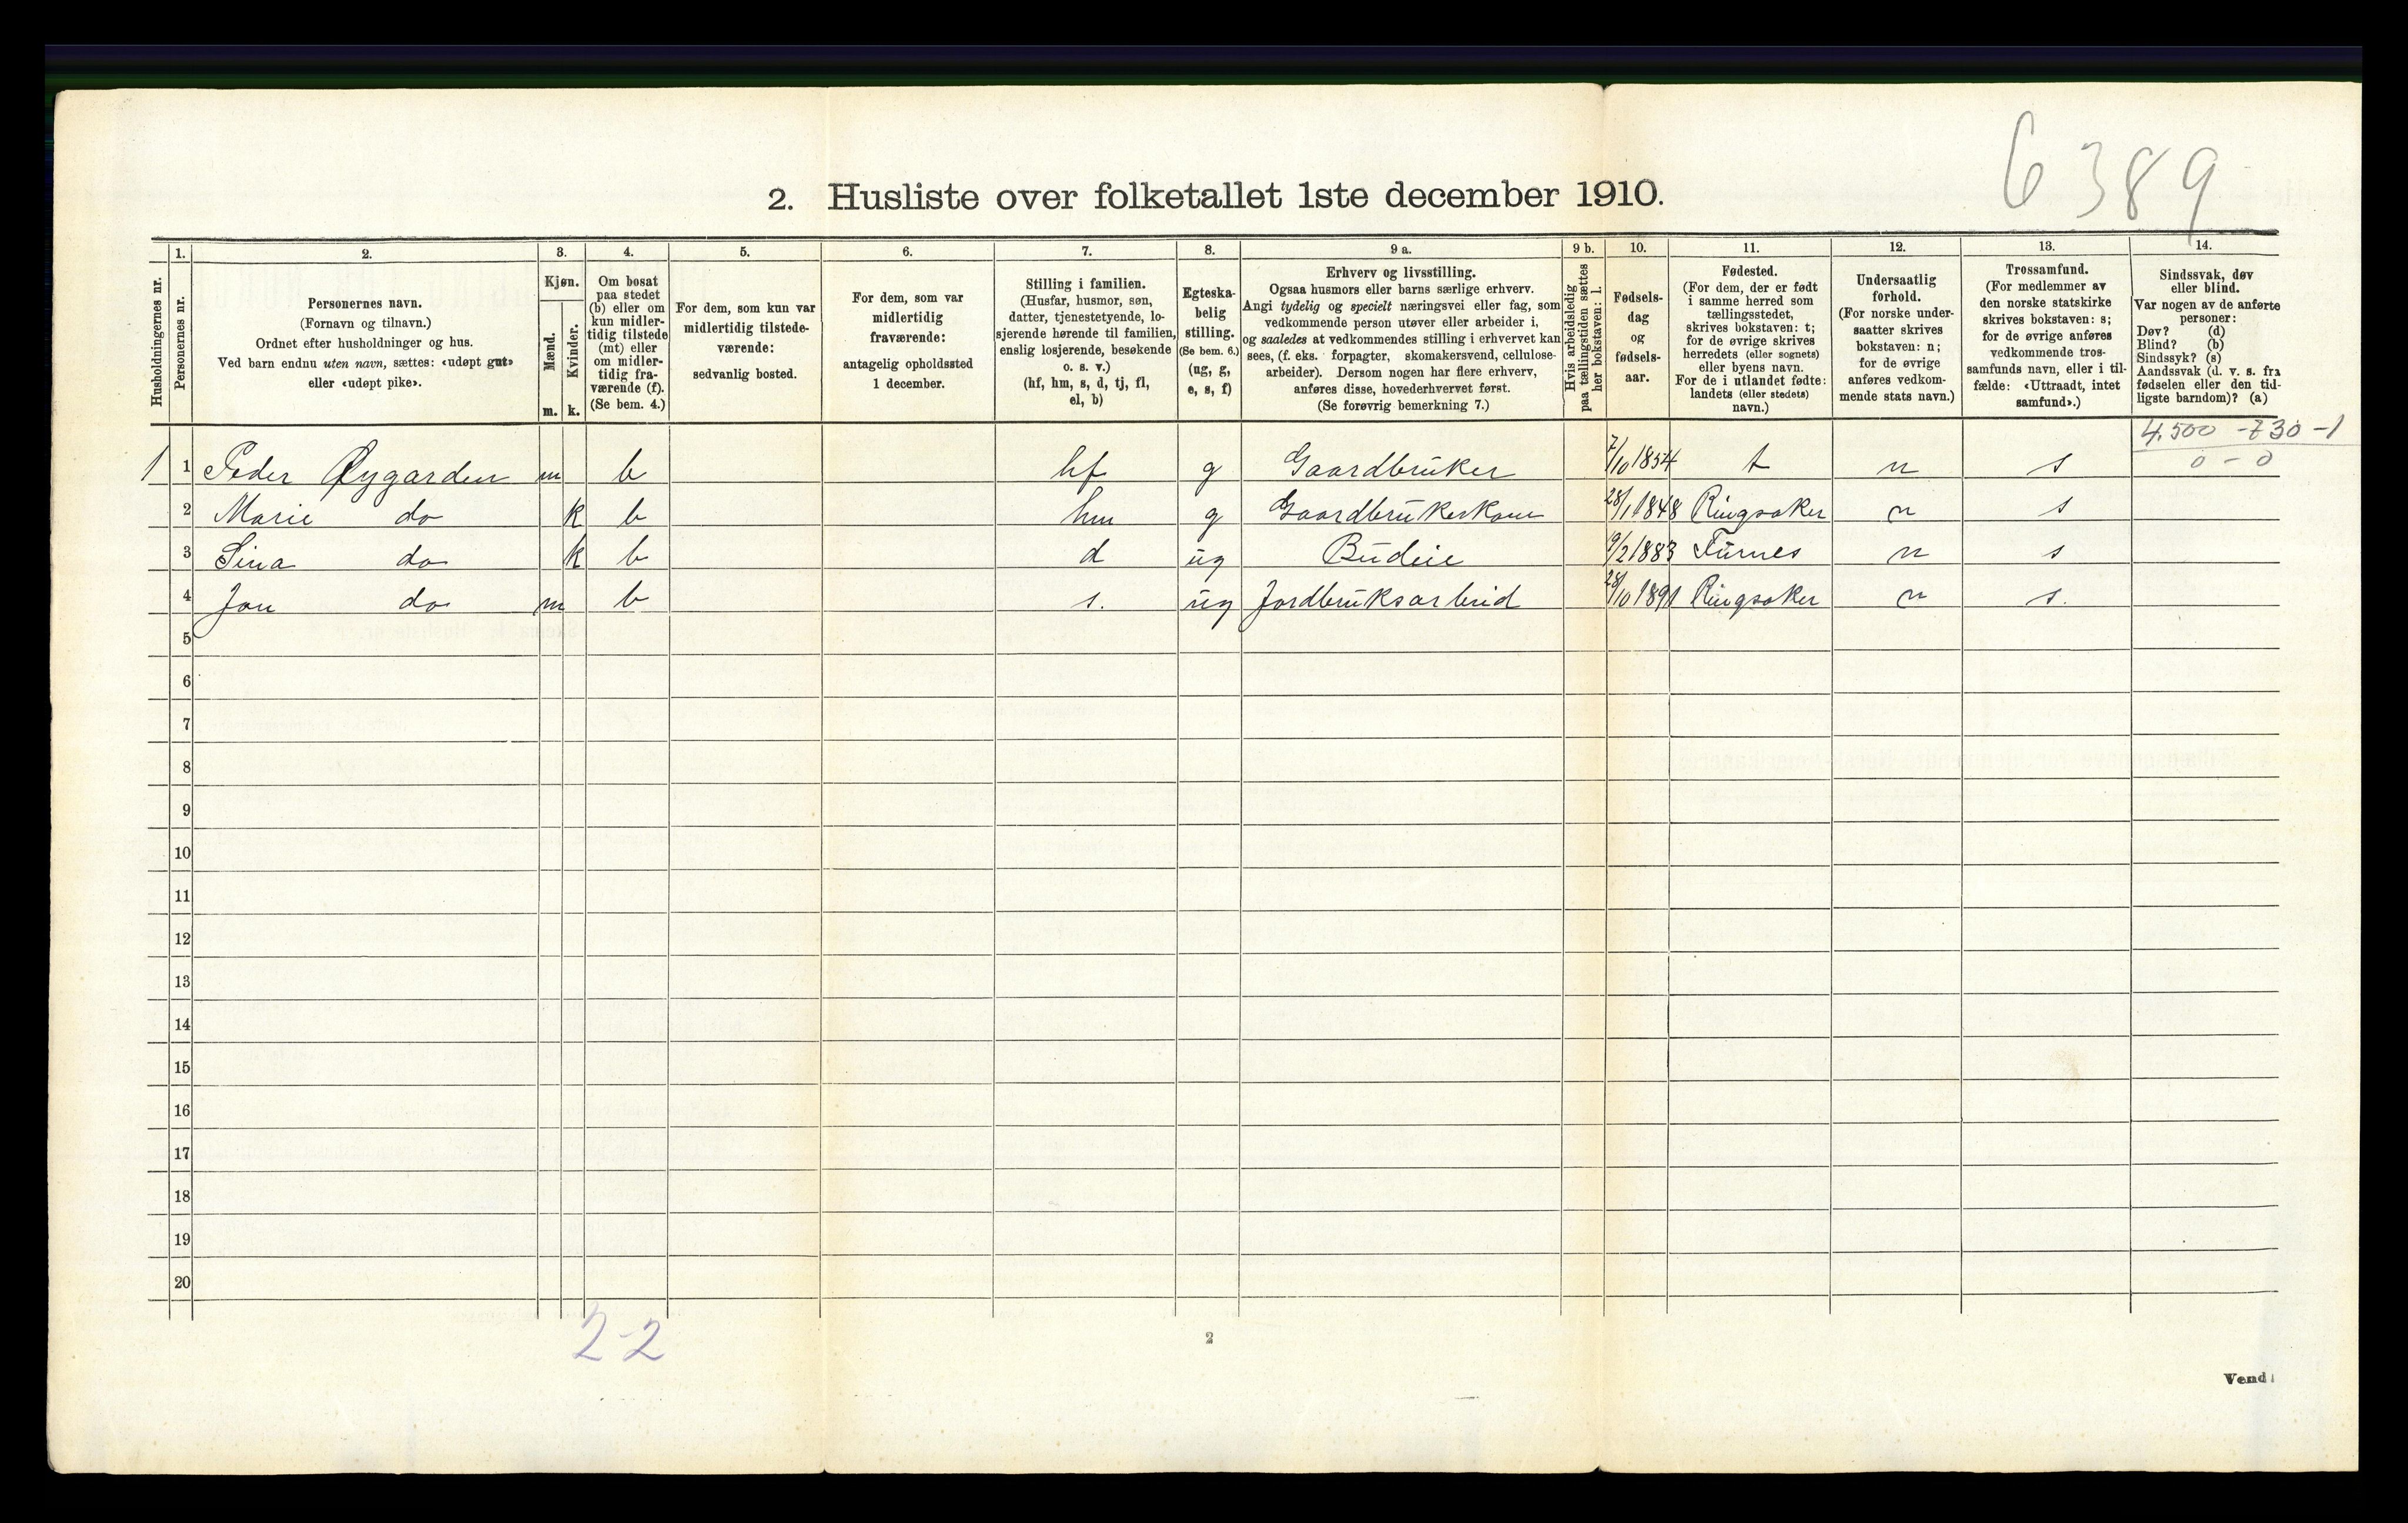 6389
2. Husliste over folketallet 1ste december 1910.
Husholdningernes nr.
1.
Personernes nr.
2.
Personernes navn.
(Fornavn og tilnavn.)
Ordnet efter husholdninger og hus.
Ved barn endnu uten navn, sættes: «udøpt gut»
eller «udøpt pike».
3.
Kjøn.
Mænd.
Kvinder.
m. k.
4.
Om bosat
paa stedet
(b) eller om
kun midler-
tidig tilstede
(mt) eller
om midler-
tidig fra-
værende (f).
(Se bem. 4.)
5.
For dem, som kun var
midlertidig tilstede-
værende:
sedvanlig bosted.
6.
For dem, som var
midlertidig
fraværende:
antagelig opholdssted
1 december.
7.
Stilling i familien.
(Husfar, husmor, søn,
datter, tjenestetyende, lo-
sjerende hørende til familien,
enslig losjerende, besøkende
o. s. v.)
(hf, hm, s, d, tj, fl,
el, b)
8.
Egteska-
belig
stilling.
(Se bem. 6.)
(ug, g,
e, s, f)
9 a.
Erhverv og livsstilling.
Ogsaa husmors eller barns særlige erhverv.
Angi tydelig og specielt næringsvei eller fag, som
vedkommende person utøver eller arbeider i,
og saaledes at vedkommendes stilling i erhvervet kan
sees, (f. eks. forpagter, skomakersvend, cellulose-
arbeider). Dersom nogen har flere erhverv,
anføres disse, hovederhvervet først.
(Se forøvrig bemerkning 7.)
9 b.
Hvis arbeidsledig
paa tællingstiden sættes
her bokstaven: l.
10.
Fødsels-
dag
og
fødsels-
aar.
11.
Fødested.
(For dem, der er født
i samme herred som
tællingsstedet,
skrives bokstaven: t;
for de øvrige skrives
herredets (eller sognets)
eller byens navn.
For de i utlandet fødte:
landets (eller stedets)
navn.)
12.
Undersaatlig
forhold.
(For norske under-
saatter skrives
bokstaven: n;
for de øvrige
anføres vedkom-
mende stats navn.)
13.
Trossamfund.
(For medlemmer av
den norske statskirke
skrives bokstaven: s;
for de øvrige anføres
vedkommende tros-
samfunds navn, eller i til-
fælde: «Uttraadt, intet
samfund».)
14.
Sindssvak, døv
eller blind.
Var nogen av de anførte
personer:
Døv? (d)
Blind? (b)
Sindssyk? (s)
Aandssvak (d. v. s. fra
fødselen eller den tid-
ligste barndom)? (a)
4.500 - 730 - 1
0 - 0
1 1 Peder Øygarden m b hf g Gaardbruker 7/10 1854 t n s
2 Marie do k b hm g Gaardbrukerkone 28/1 1848 Ringsaker n s
3 Sina do k b d ug Budeie 9/2 1883 Furnes n s
4 Jon do m b s. ug Jordbruksarbeid 28/10 1891 Ringsaker n s.
5
6
7
8
9
10
11
12
13
14
15
16
17
18
19
20
2-2
2
Vend!